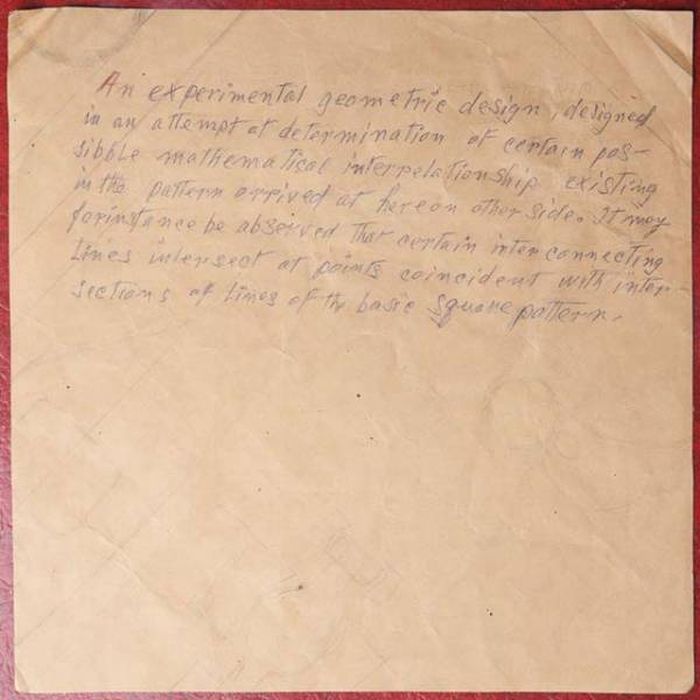 An experimental geometric design, designed
in an attempt at determination of certain pos-
sibble mathematical interrelationship existing
in the pattern arrived at hereon other side. It may
forinstance be observed that certain interconnecting
Lines intersect at points coincident with inter-
sections of Lines of the basic square pattern.